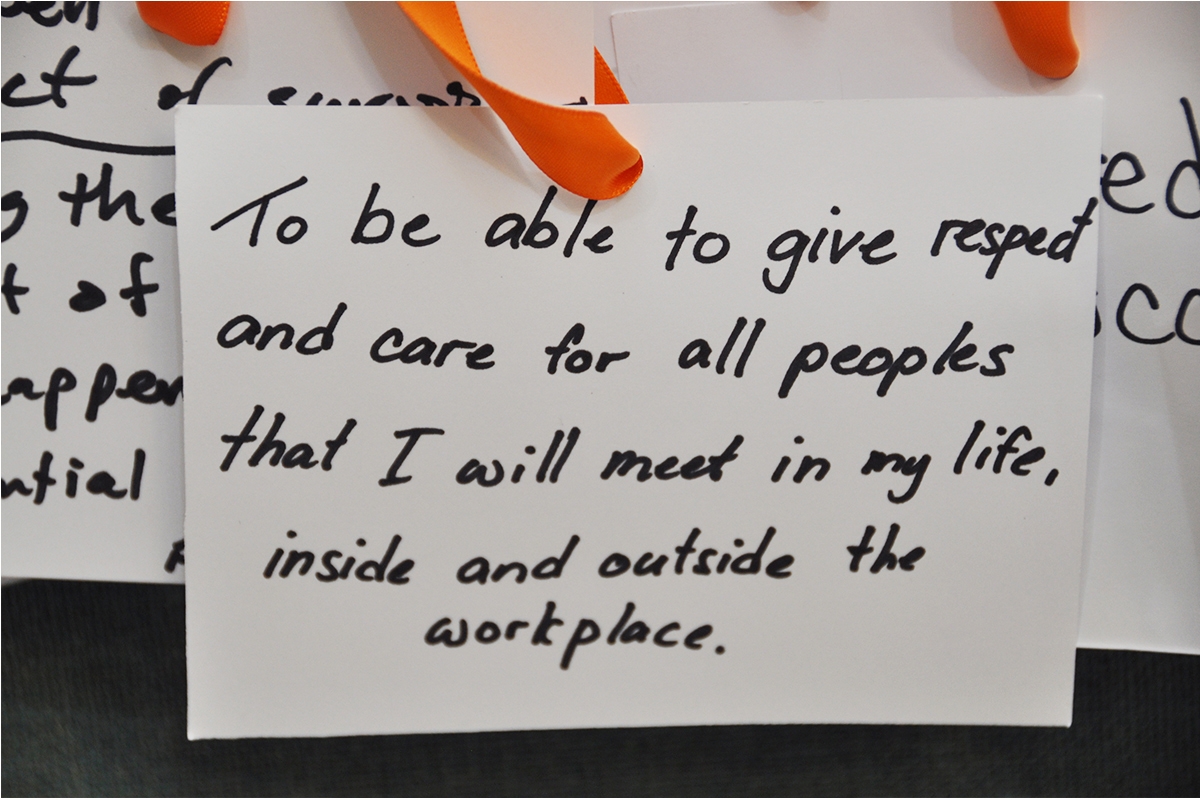 of
the
of
To be able to give respect
and care for all peoples
that I will meet in my life,
inside and outside the
workplace.